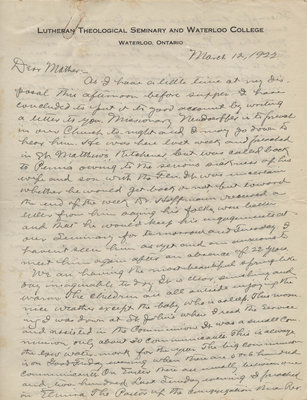 LUTHERAN THEOLOGICAL SEMINARY AND WATERLOO COLLEGE
WATERLOO, ONTARIO
March 12, 1922
Dear Mother:
As I have a little time at my dis-
posal this afternoon before supper I have
concluded to put it to good account by writing
a letter to you. Missionary Neudoerffer is to preach
in our Church to-night and I may go down to
hear him. He was here last week and preached
in St. Matthews Kitchener but was called back
to Penna owing to the serious sickness of his
wife and son with the Flu. It was uncertain
whether he would get back or not but toward
the end of the week Dr. Hoffmann received a
letter from him saying his folks were better
and that he would keep his engagements at
our Seminary for to-morrow and Tuesday. I
haven't seen him as yet and am anxious to
meet him again after an absence of 22 years.
We are having the most beautiful spring like
day imaginable to-day. It is clear, sunshiny and
warm. The children are all outside enjoying the
nice weather except the baby who is asleep. This morn-
ing I was down at St. John's where I read the service
and assisted in the Communion. It was a small Com-
munion, only about 50 Communicants. This is always
the low water mark for the year. The big Communion
is on Good Friday evening when there are
communicants. On Easter there are usually between
and two hundred. Last Sunday evening I preached
in Elmira. The Pastor of the Congregation there Rev